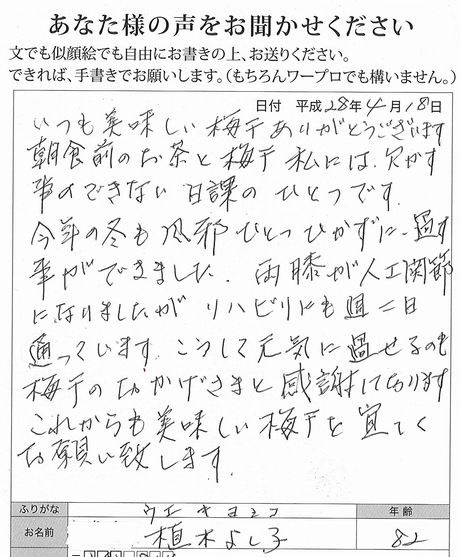 あなた様の声をお聞かせください
文でも似顔絵でも自由にお書きの上、お送りください。
できれば、手書きでお願いします。（もちろんワープロでも構いません。）
日付 平成28年4月18日
いつも美味しい梅干ありがとうございます
朝食前のお茶と梅干 私には欠かす
事のできない日課のひとつです。
今年の冬も風邪ひとつひかずに過す
事ができました。両膝が人工関節
になりましたがリハビリにも週二日
通っています。こうして元気に過せるのも
梅干のおかげさまと感謝しております
これからも美味しい梅干を宜しく
お願い致します。
ふりがな ウエキヨシコ 年齢
お名前 植木よし子 82